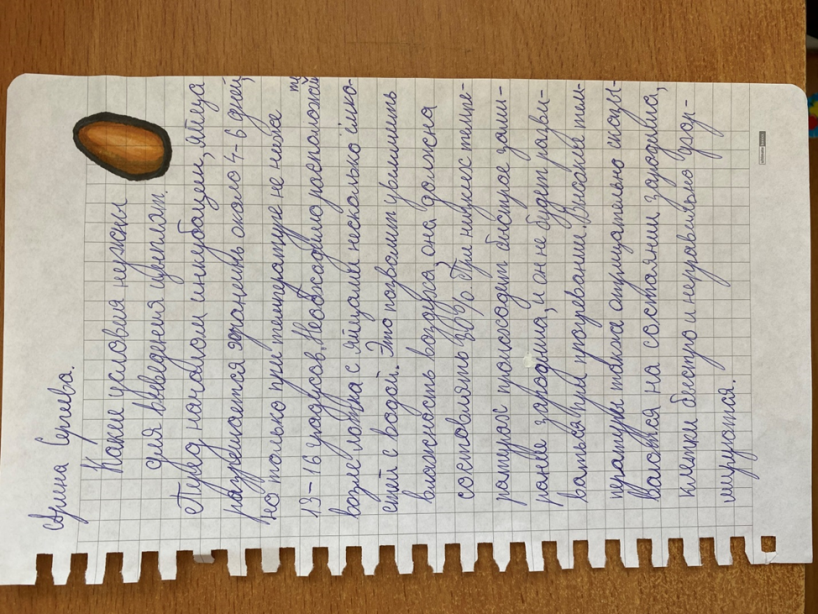 Арина Сергева.
Какие условия нужны
для выведения цыплат.
Перед началом инкубации, яйца
разрешается хранить около 4-6 дней,
но только при температуре не ниже
13-16 градусов. Необходимо расположить
возле лотка с яйцами несколько ёмко-
стей с водой. Это позволит увеличить
влажность воздуха, она должна
составлять 80%. При низких темпе-
ратурах происходит быстрое зами-
рание зародыша, и он не будет разви-
ваться при прогревании. Высокие тем-
пературы также отрицательно сказы-
ваются на состоянии зародыша,
клетки быстро и неправильно фор-
мируются.